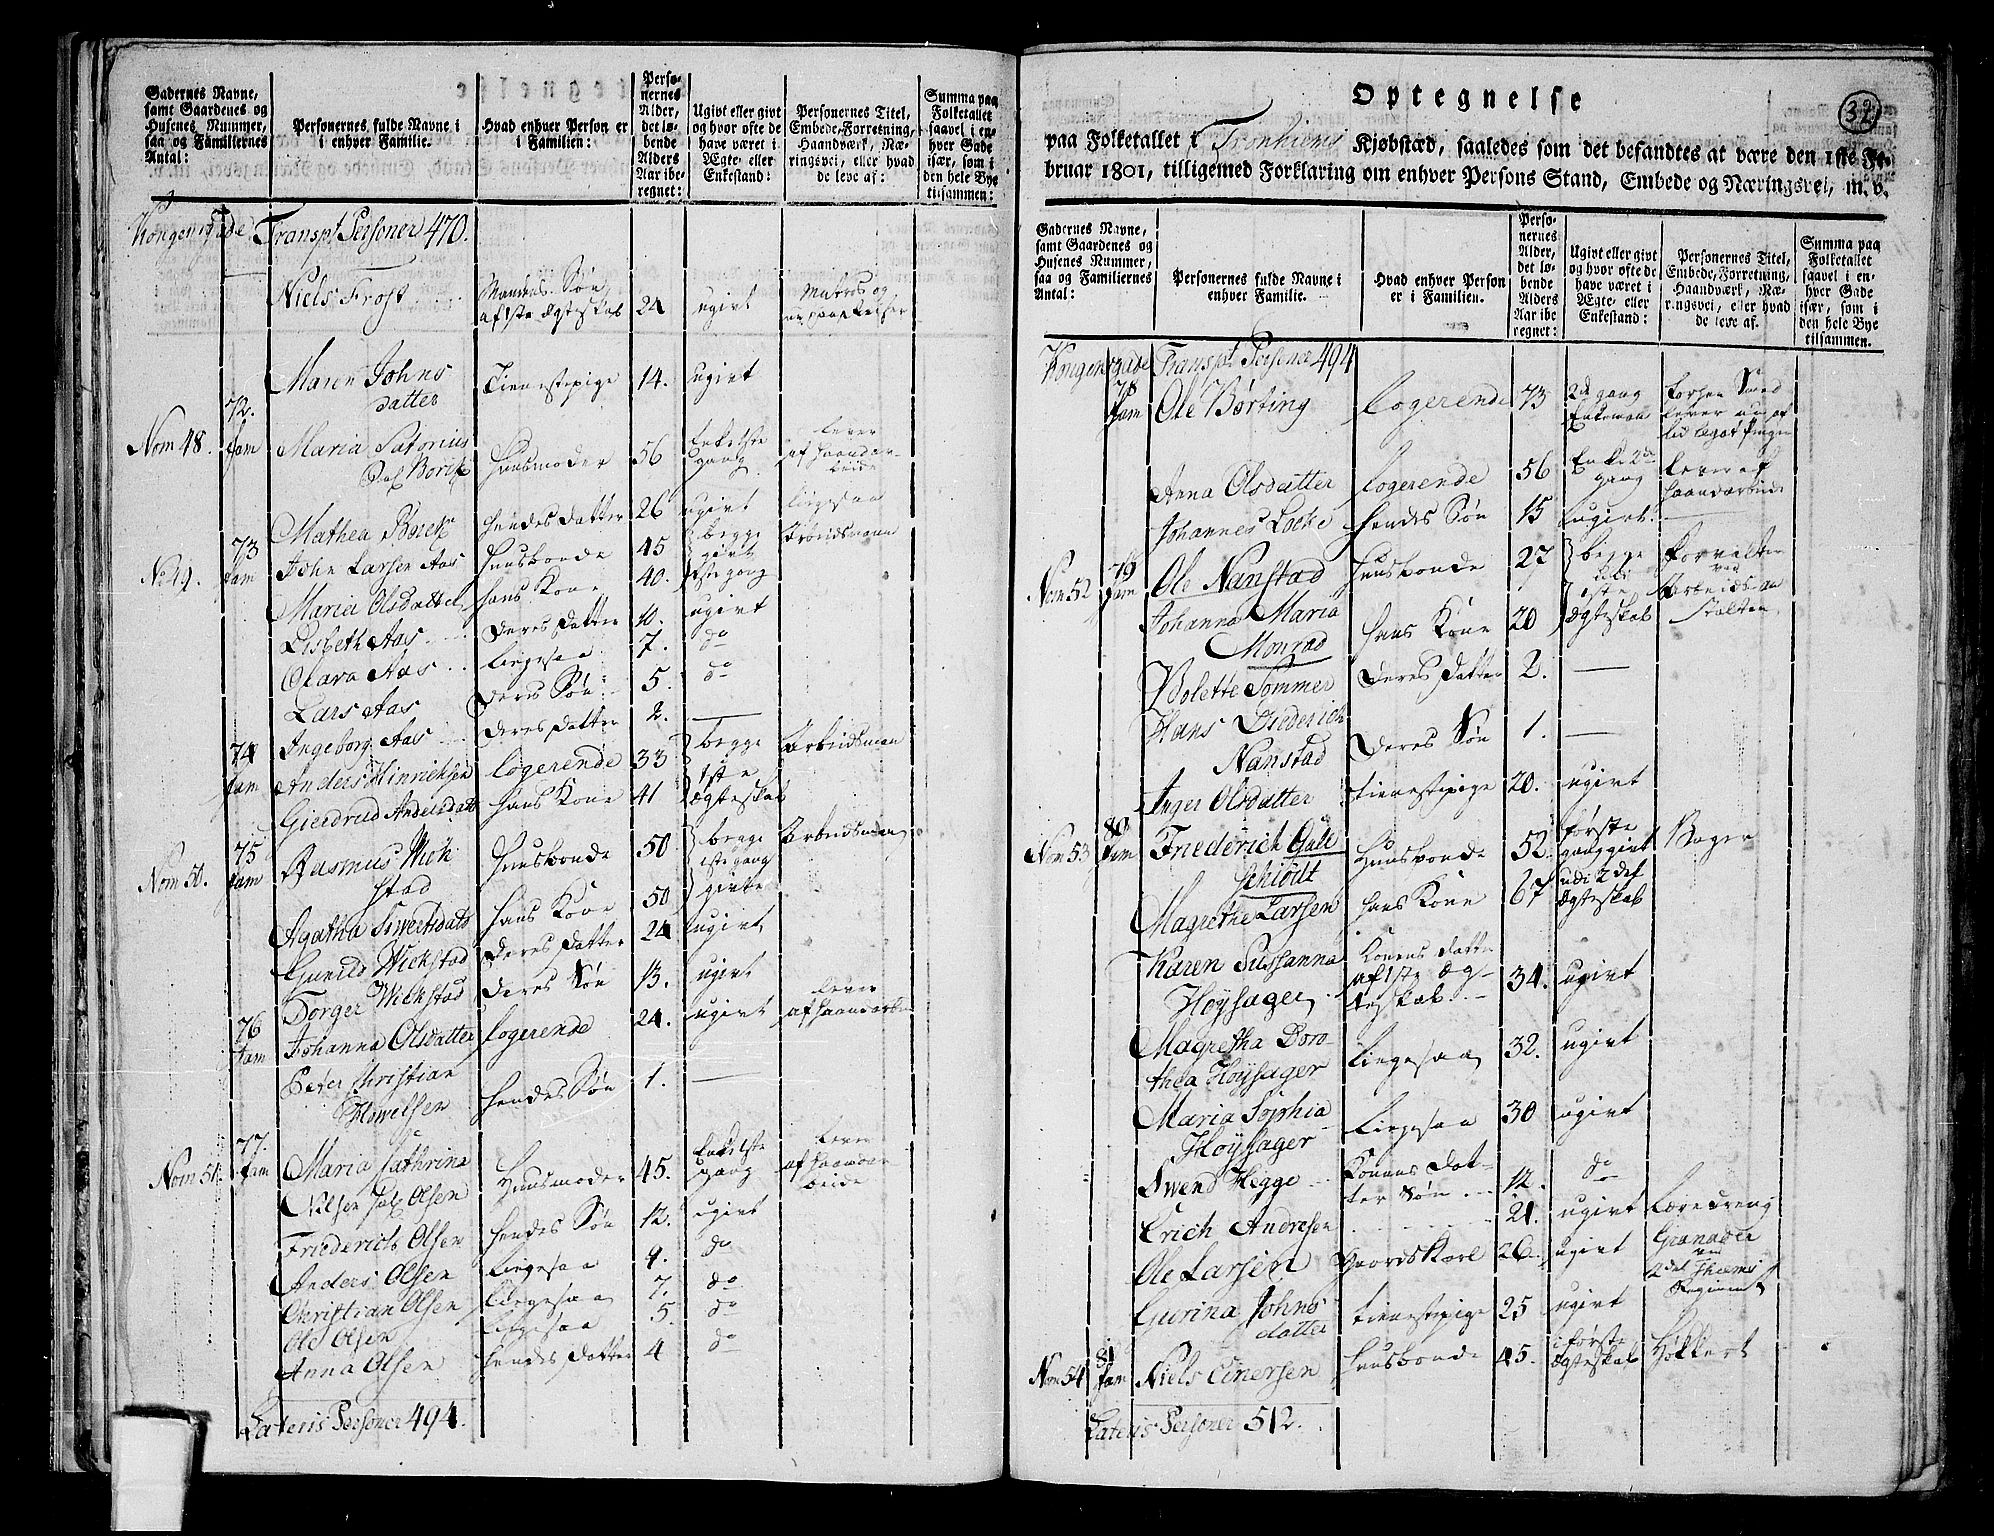 Gadernes Navne,
samt Gaardenes og
Husenes Nummer,
saa og Familiernes
Antal:
Personernes fulde Navne i
i enhver Familie.
Hvad enhver Person er
i Familien:
Perso-
nernes
Alder,
det lø-
bende
Alders
Aar ibe-
regnet:
Ugivt eller givt
og hvor ofte de
have været i
Ægte- eller
Enkestand:
Personernes Titel,
Embede, Forretning,
Haandværk, Næ-
ringsvei, eller hvad
de leve af:
Summa paa
Folketallet
saavel i en-
hver Gade
især, som i
den hele Bye
tilsammen:
Kongensgade Transpt Personer 470.
Niels Frost Mandens Søn af 1ste Ægteskab 24 ugivt Matros og
Maren Johns
datter Tienestepige 14. ugivt
Nom 48. 72. fam Maria Satorius
Sal Borch Huusmoder 56 Enke 1ste gang lever af Haandar-
beide
Mathea Borch hendes datter 26 ugivt ligesaa
No 49. 73 fam John Larsen Aas Huusbonde 45 begge givt 1ste gang Arbeidsmand
Maria Olsdatter hans Kone 40.
Lisbeth Aas deres datter 10. ugivt
Olava Aas ligesaa 7. do
Lars Aas deres Søn 5. do
Ingeborg Aas deres datter 2. —
74 fam Anders Hinrichsen logerende 33 begge 1ste Ægteskab Arbeidsman
Gierdrud Andersdatr hans Kone 41
Nom 50. 75 fam Rasmus Wich
stad Huusbonde 50 begge 1ste gang givte Arbeidsman
Agatha Siwertsdatr hans Kone 50
Gunild Wichstad deres datter 24 ugivt
Torger Wichstad deres Søn 13. ugivt
76 fam Johanna Olsdatter logerende 24. ugivt lever af haandarb
Peter Christian
Howelsen hendes Søn 1. —
Nom 51. 77. fam Maria Cathrina
Nilsen Sal Olsen Huusmoder 45. Enke 1ste gang lever af haandar
beide
Friederich Olsen hendes Søn 12. ugivt
Anders Olsen ligesaa 9. do
Christian Olsen ligesaa 7. do
Ole Olsen ligesaa 5. do
Anna Olsen hendes datter 4 do
Lateris Personer 494.
32
Optegnelse
paa Folketallet i Tronhiems Kjøbstæd, saaledes som det befandtes at være den 1ste Fe-
bruar 1801, tilligemed Forklaring om enhver Persons Stand, Embede og Næringsvei, m. v.
Gadernes Navne,
samt Gaardenes og
Husenes Nummer,
saa og Familiernes
Antal:
Personernes fulde Navne i
enhver Familie.
Hvad enhver Person
er i Familien.
Perso-
nernes
Alder,
det lø-
bende
Alders
Aar ibe-
regnet:
Ugivt eller givt
og hvor ofte de
have været i
Ægte- eller
Enkestand:
Personernes Titel,
Embede, Forretning,
Haandværk, Næ-
ringsvei, eller hvad
de leve af.
Summa paa
Folketallet
saavel i en-
hver Gade
især, som i
den hele Bye
tilsammen.
Kongensgade Transpt Personer 494
78 fam Ole Børting logerende 73 2den gang Enkemand
Anna Olsdatter logerende 56 Enke 2den gang lever af haandarbeide
Johannes Locke hendes Søn 15 ugivt. —
Nom 52 79 fam Ole Nanstad Huusbonde 27 begge udi 1ste Ægteskab Forvalter ved Arbeids-an
stalten
Johanna Maria
Monrad hans Kone 20
Bolette Sommer deres datter 2. —
Hans Diederich
Nanstad deres Søn 1. —
Inger Olsdatter tienestepige 20. ugivt
Nom 53 80 fam Friederich Gall
Schlødt Huusbonde 52. første gang givt Bager
Magrethe Larsen hans Kone 67 udi 2det Ægteskab
Karen Sussanna
Høysager Konens datter af 1ste Æg-
teskab 34. ugivt
Magretha Doro-
thea Høysager ligesaa 32. ugivt
Maria Sophia
Høysager ligesaa 30 ugivt
Swend Hegge Konens dat-
ter Søn 12. do
Erich Andresen 21. ugivt Læredreng
Ole Larsen Gaardskarl 26 ugivt Granadeer ved
2det Thiems
Regiment
Gurina Johns
datter tienestepige 25 ugivt
Nom 54 81 fam Niels Einersen Huusbonde 45. i første Ægteskab Høkkert
Lateris Personer 512.